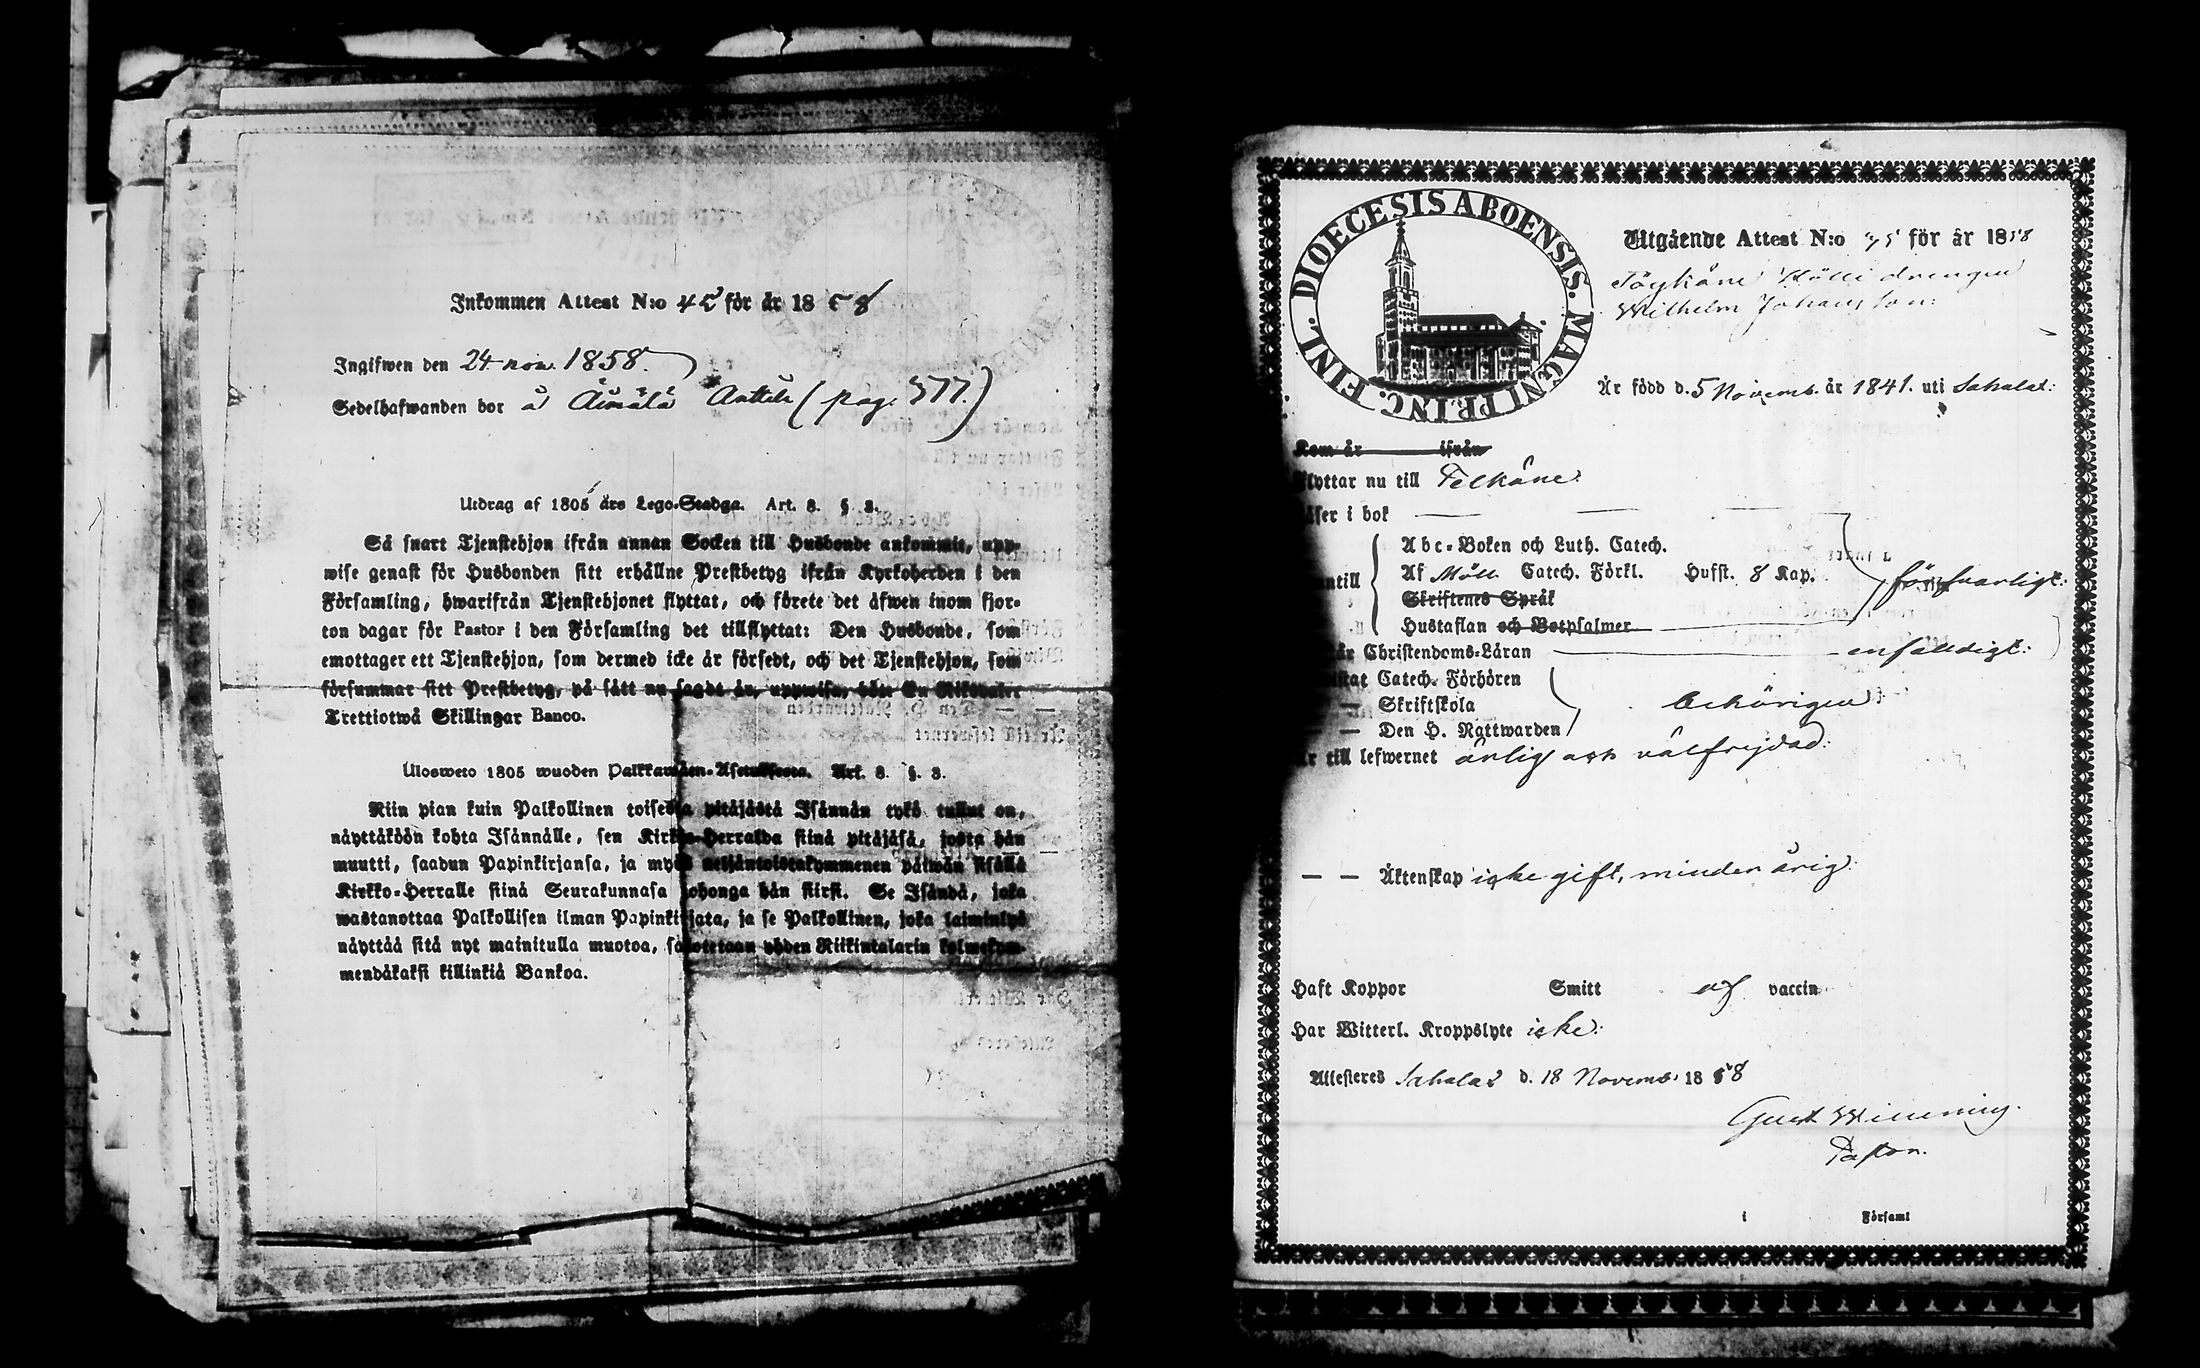 Inkommen Attest N:o 45 för år 1858
Ingifwen den 24 nov. 1858.
Sedelhafwanden bor å Äimälä Anttila (pag. 377.)
Utdrag af 1805 års Lego-Stadga. Art. 8. § 3.
Så snart Tjenstehjon ifrån annan Socken till Husbonde ankommit, upp-
wise genast för Husbonden sitt erhållne Prestbetyg ifrån Kyrkoherden i den
Församling, hwarifrån Tjenstehjonet flyttat, och förete det äfwen inom fjor-
ton dagar för Pastor i den Församling det tillflyttat: Den Husbonde, som
emottager ett Tjenstehjon, som dermed icke är försedt, och det Tjenstehjon, som
försummar sitt Prestbetyg, på sätt nu sagdt är, uppwisa, böte En Riksdaler
Trettiotwå Skillingar Banco.
Ulosweto 1805 wuoden Palkkawäen-Asetuksesta. Art. 8. §. 3.
Niin pian kuin Palkollinen toisesta pitäjästä Isännän tykö tullut on,
näyttäköön kohta Isännälle, sen Kirkko-Herralda siinä pitäjäsä, josta hän
muutti, saadun Papinkirjansa, ja myös neljäntoistakymmenen päiwän sisällä
Kirkko-Herralle siinä Seurakunnasa johonga hän siirsi. Se Isändä, joka
wastanottaa Palkollisen ilman Papinkirjata, ja se Palkollinen, joka laiminlyö
näyttää sitä nyt mainitulla muotoa, sakotetaan yhden Riikintalarin kolmekym-
mendäkaksi killinkiä Bankoa.
DIOECESIS ABOENSIS. MAGNI PRINC. FINL.
Utgående Attest N:o 75 för år 1858
drengen
Wilhelm Johansson:
Är född d. 5 Novemb. år 1841. uti Sahalax:
Kom år ifrån
Flyttar nu till Pelkäne:
Läser i bok
Abc-Boken och Luth. Catech.
Utantill Af Möll. Catech. Förkl. Husst. 8 Kap. försvarligt:
Skriftenes Språk
Hustaflan och Botpsalmer
Christendoms-Läran enfaldigt:
Catech. Förhören
— Skriftskola behörigen:
— Den H. Nattwarden
Är till lefwernet ärlig och välfrejdad:
— — Äktenskap icke gift, minderårig:
Haft Koppor Smitt af vaccin
Har Witterl. Kroppslyte icke:
Attesteres Sahalax d. 18 Novemb. 1858
Gust Winning.
Pastor.
i Församl